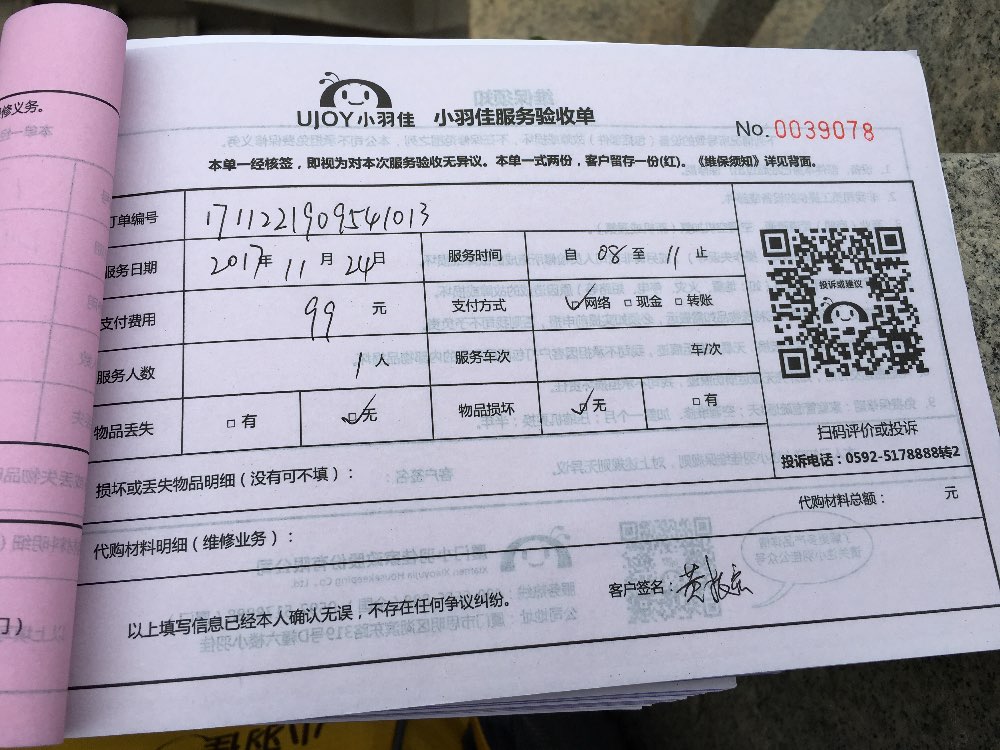 修义务。
UJOY小羽佳 小羽佳服务验收单
No.0039078
本单一经核签，即视为对本次服务验收无异议。本单一式两份，客户留存一份(红)。《维保须知》详见背面。
订单编号 1711221909541013
服务日期 2017年 11 月 24日 服务时间 自 08 至 11 止
支付费用 99 元 支付方式 ☑网络 □现金 □转账
服务人数 1人 服务车次 车/次
物品丢失 □有 ☑无 物品损坏 ☑无 □有
投诉或建议
扫码评价或投诉
投诉电话：0592-5178888转2
损坏或丢失物品明细（没有可不填）：
代购材料总额： 元
代购材料明细（维修业务）：
客户签名：
以上填写信息已经本人确认无误，不存在任何争议纠纷。